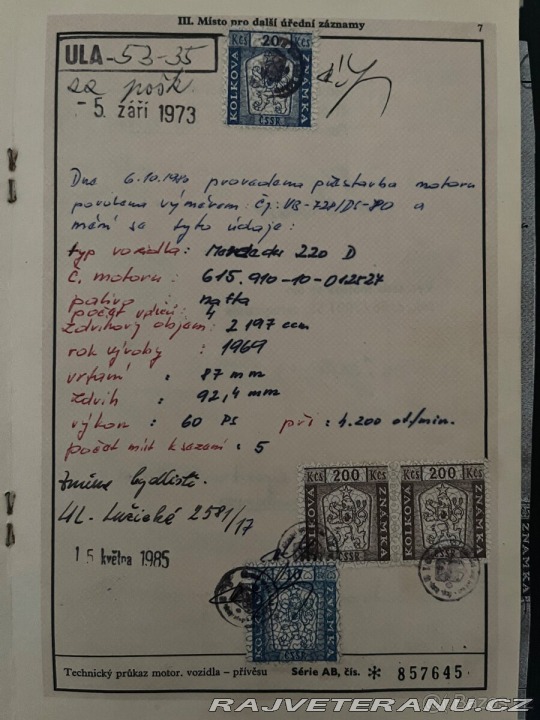 III. Místo pro další úřední záznamy
7
ULA-53-35
za pošk
- 5. září 1973
Kčs 20
KOLKOVÁ ZNÁMKA
ČSSR
Dne 6.10.1980 provedena přestavba motoru
povolena výměrem: čj: VB-728/DI-80 a
mění se tyto údaje:
typ vozidla: Mercedes 220 D
č. motoru: 615.910-10-012527
palivo: nafta
počet válců: 4
Zdvihový objem: 2 197 ccm
rok výroby : 1969
vrtání : 87 mm
zdvih : 92,4 mm
výkon : 60 PS při : 4.200 ot/min.
počet míst k sezení : 5
Změna bydliště:
UL. Lučické 2581/17
15. května 1985
Kčs 200 Kčs 200
KOLKOVÁ ZNÁMKA KOLKOVÁ ZNÁMKA
ČSSR ČSSR
Technický průkaz motor. vozidla – přívěsu Série AB, čís. * 857645
RAJVETERANU.CZ